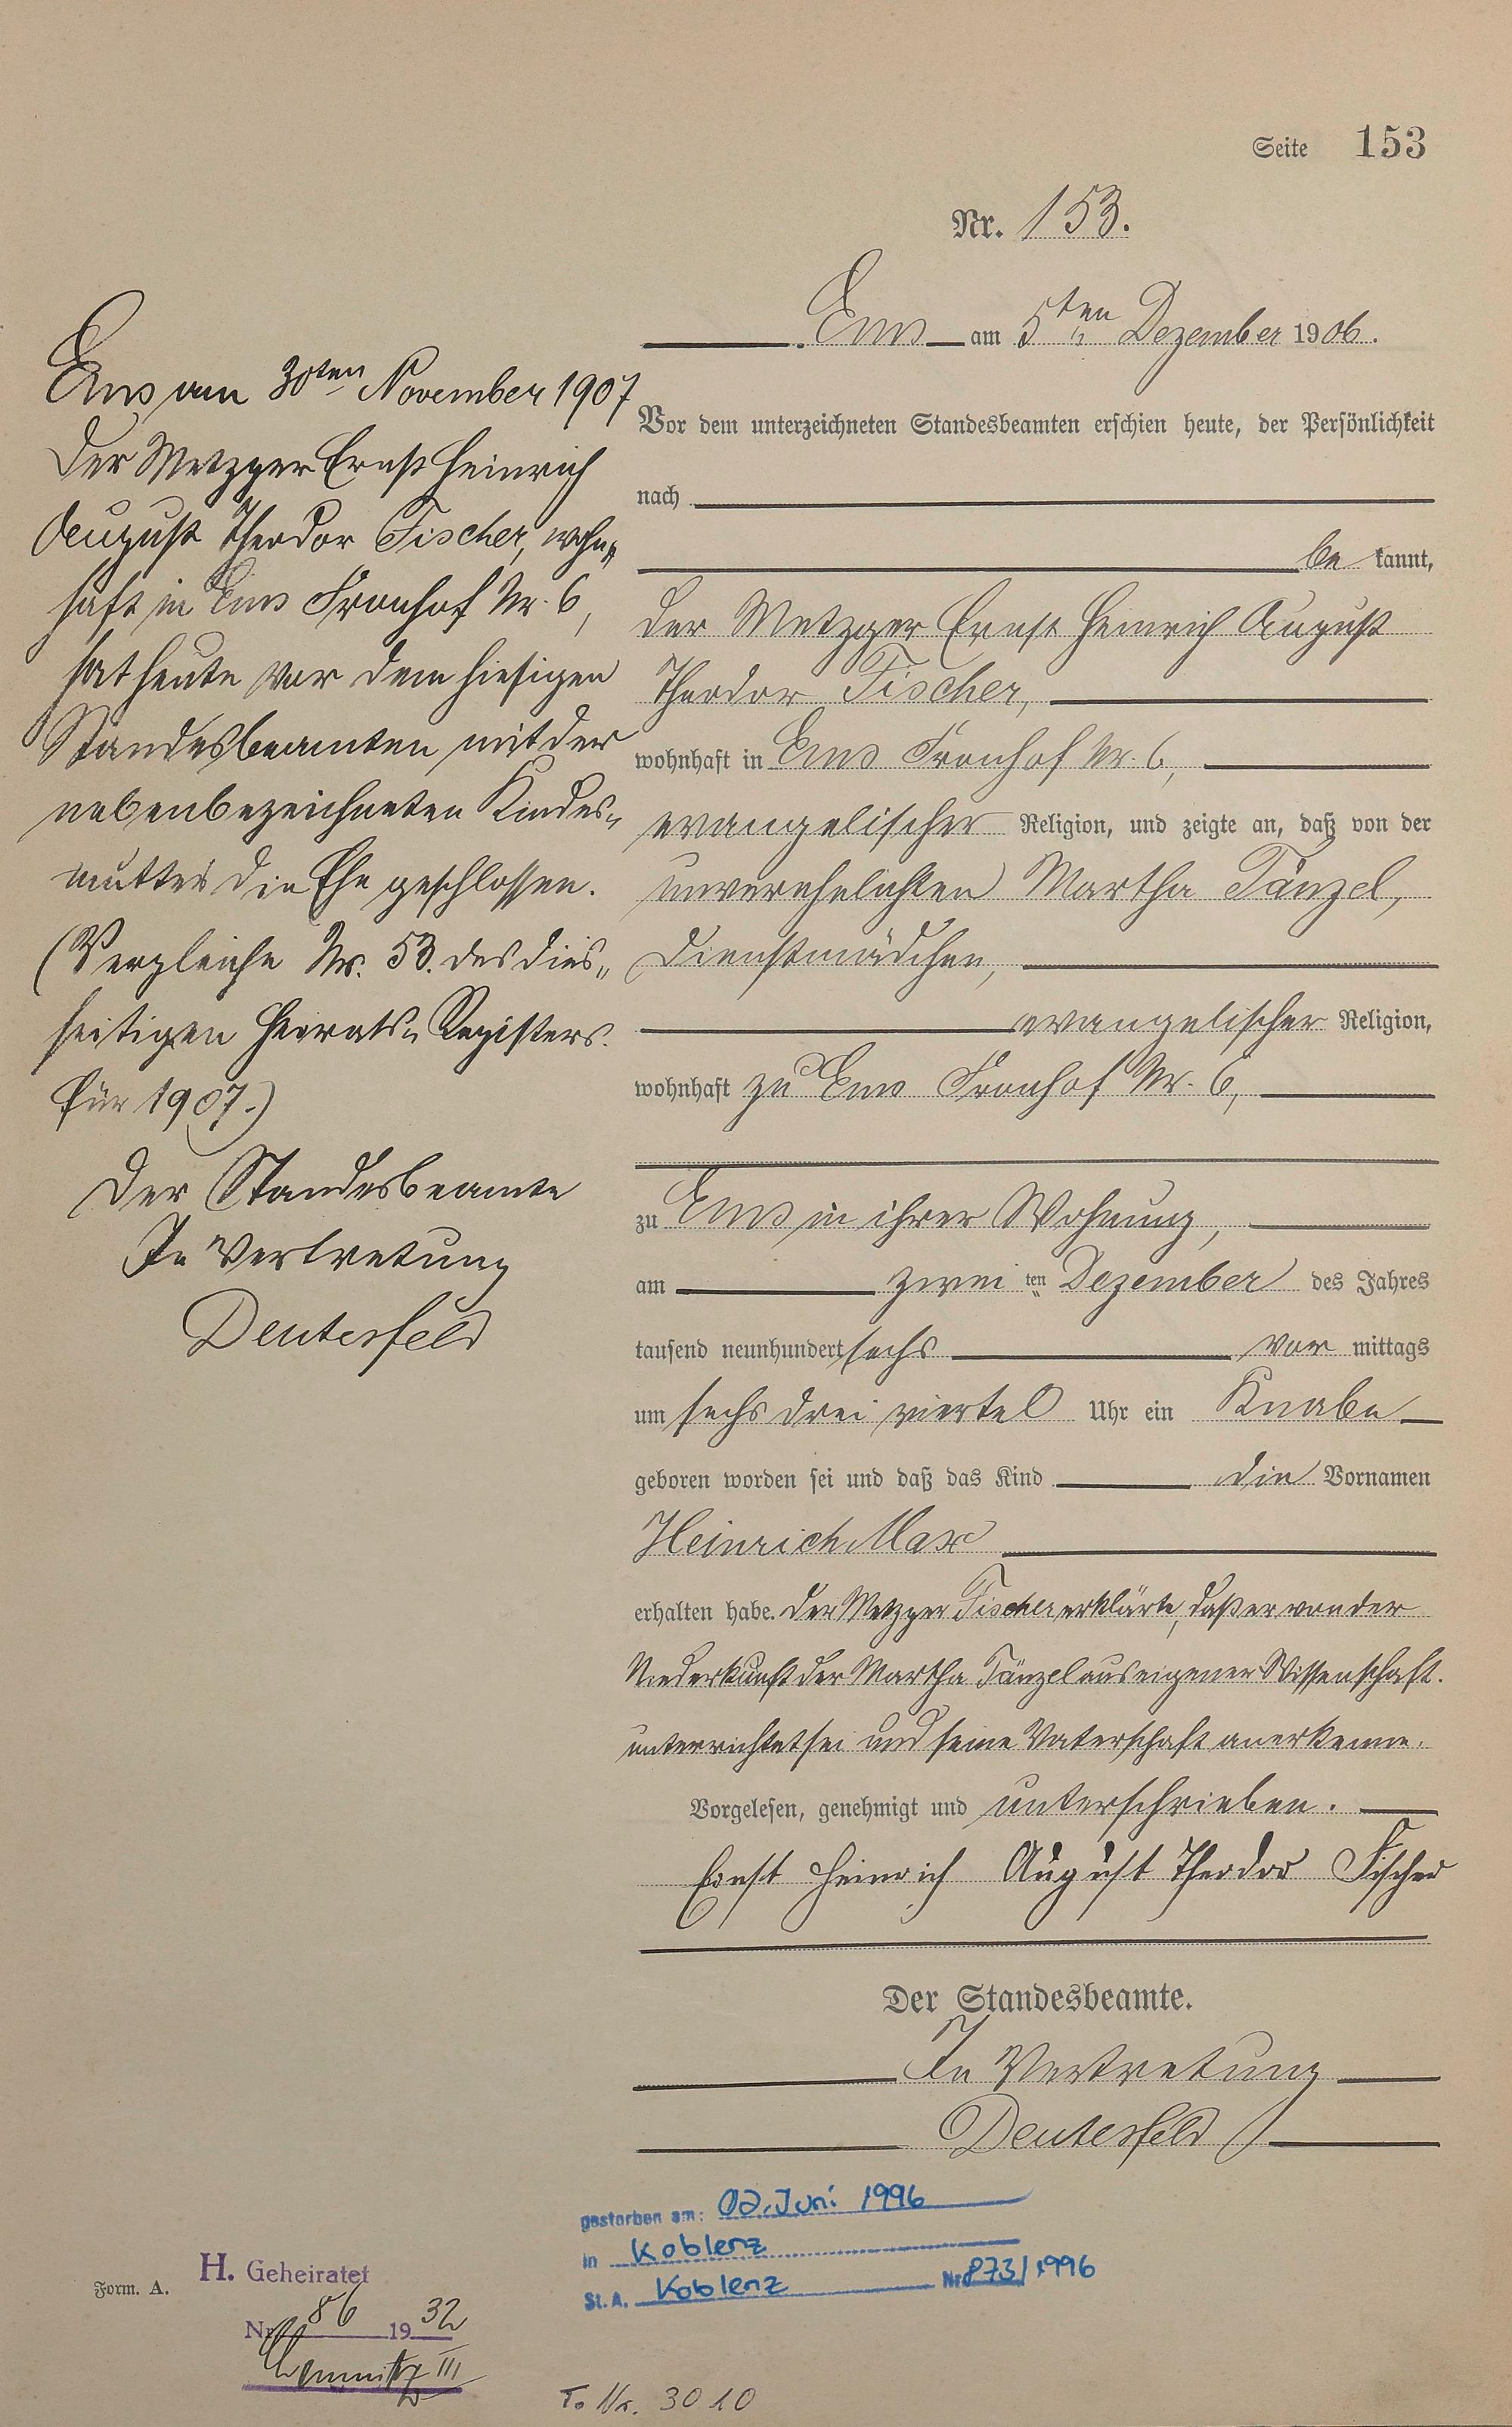 Seite 153
Nr. 153.
Ems am 5ten Dezember 1906.
Vor dem unterzeichneten Standesbeamten erschien heute, der Persönlichkeit
nach
be kannt,
der Metzger Ernst Heinrich August
Theodor Fischer,
wohnhaft in Ems Fronhof Nr. 6,
evangelischer Religion, und zeigte an, daß von der
unverehelichten Martha Tänzel,
Dienstmädchen,
evangelischer Religion,
wohnhaft zu Ems Fronhof Nr. 6,
zu Ems in ihrer Wohnung,
am zwei ten Dezember des Jahres
tausend neunhundert sechs vor mittags
um sechs drei viertel Uhr ein Knabe
geboren worden sei und daß das Kind die Vornamen
Heinrich Max
erhalten habe. Der Metzger Fischer erklärte, daß er von der
Niederkunft der Martha Tänzel aus eigener Wissenschaft.
unterrichtet sei und seine Vaterschaft anerkenne.
Vorgelesen, genehmigt und unterschrieben.
Ernst Heinrich August Theodor Fischer
Der Standesbeamte.
In Vertretung
Deutesfeld
Ems am 30ten November 1907
Der Metzger Ernst Heinrich
August Theodor Fischer, wohn„
haft in Ems Fronhof Nr. 6,
hat heute vor dem hiesigen
Standesbeamten mit der
nebenbezeichneten Kindes„
mutter die Ehe geschlossen.
(Vergleiche Nr. 53. des dies„
seitigen Heirats„Registers.
für 1907.)
Der Standesbeamte
In Vertretung
Deutesfeld
gestorben am: 02. Juni 1996
in Koblenz
St. A. Koblenz Nr 873/1996
Form. A.
H. Geheiratet
Nr. 86 1932
Chemnitz III
T. Nr. 3010